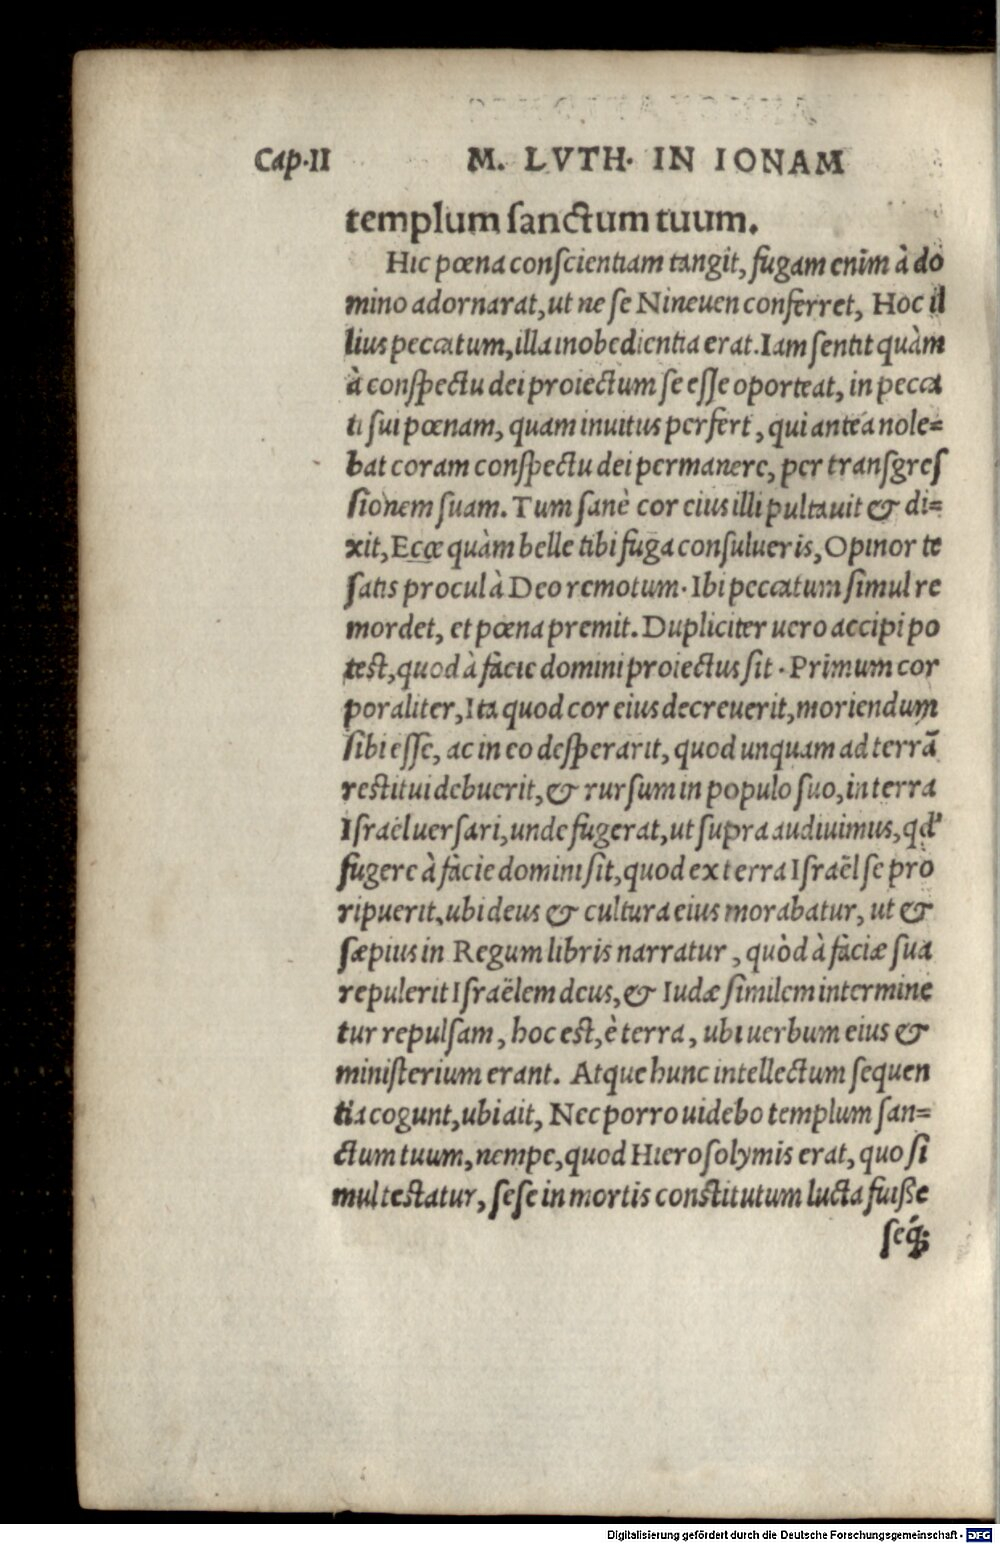 Cap·II M. LVTH· IN IONAM
templum ſanctum tuum.
Hic pœna conſcientiam tangit, fugam enim à do
mino adornarat, ut ne ſe Nineuen conferret, Hoc il
lius peccatum, illa inobedientia erat. Iam ſentit quàm
à conſpectu dei proiectum ſe eſſe oporteat, in pecca
ti ſui pœnam, quam inuitus perfert, qui anteà nole=
bat coram conſpectu dei permanere, per tranſgreſ
ſionem ſuam. Tum ſanè cor eius illi pultauit & di=
xit, Ecce quàm belle tibi fuga conſulueris, Opinor te
ſatis procul à Deo remotum· Ibi peccatum ſimul re
mordet, et pœna premit. Dupliciter uero accipi po
test, quod à facie domini proiectus ſit · Primum cor
poraliter, Ita quod cor eius decreuerit, moriendum
ſibi eſſe, ac in eo deſperarit, quod unquam ad terrã
restitui debuerit, & rurſum in populo ſuo, in terra
Iſraël uerſari, unde fugerat, ut ſupra audiuimus, qd'
fugere à facie domini ſit, quod ex terra Iſraël ſe pro
ripuerit, ubi deus & cultura eius morabatur, ut &
ſæpius in Regum libris narratur, quòd à faciæ ſua
repulerit Iſraëlem deus, & Iudæ ſimilem intermine
tur repulſam, hoc est, è terra, ubi uerbum eius &
miniſterium erant. Atque hunc intellectum ſequen
tia cogunt, ubi ait, Nec porro uidebo templum ſan=
ctum tuum, nempe, quod Hieroſolymis erat, quo ſi
mul testatur, ſeſe in mortis constitutum lucta fuiße
ſeq́;
Digitalisierung gefördert durch die Deutsche Forschungsgemeinschaft · DFG